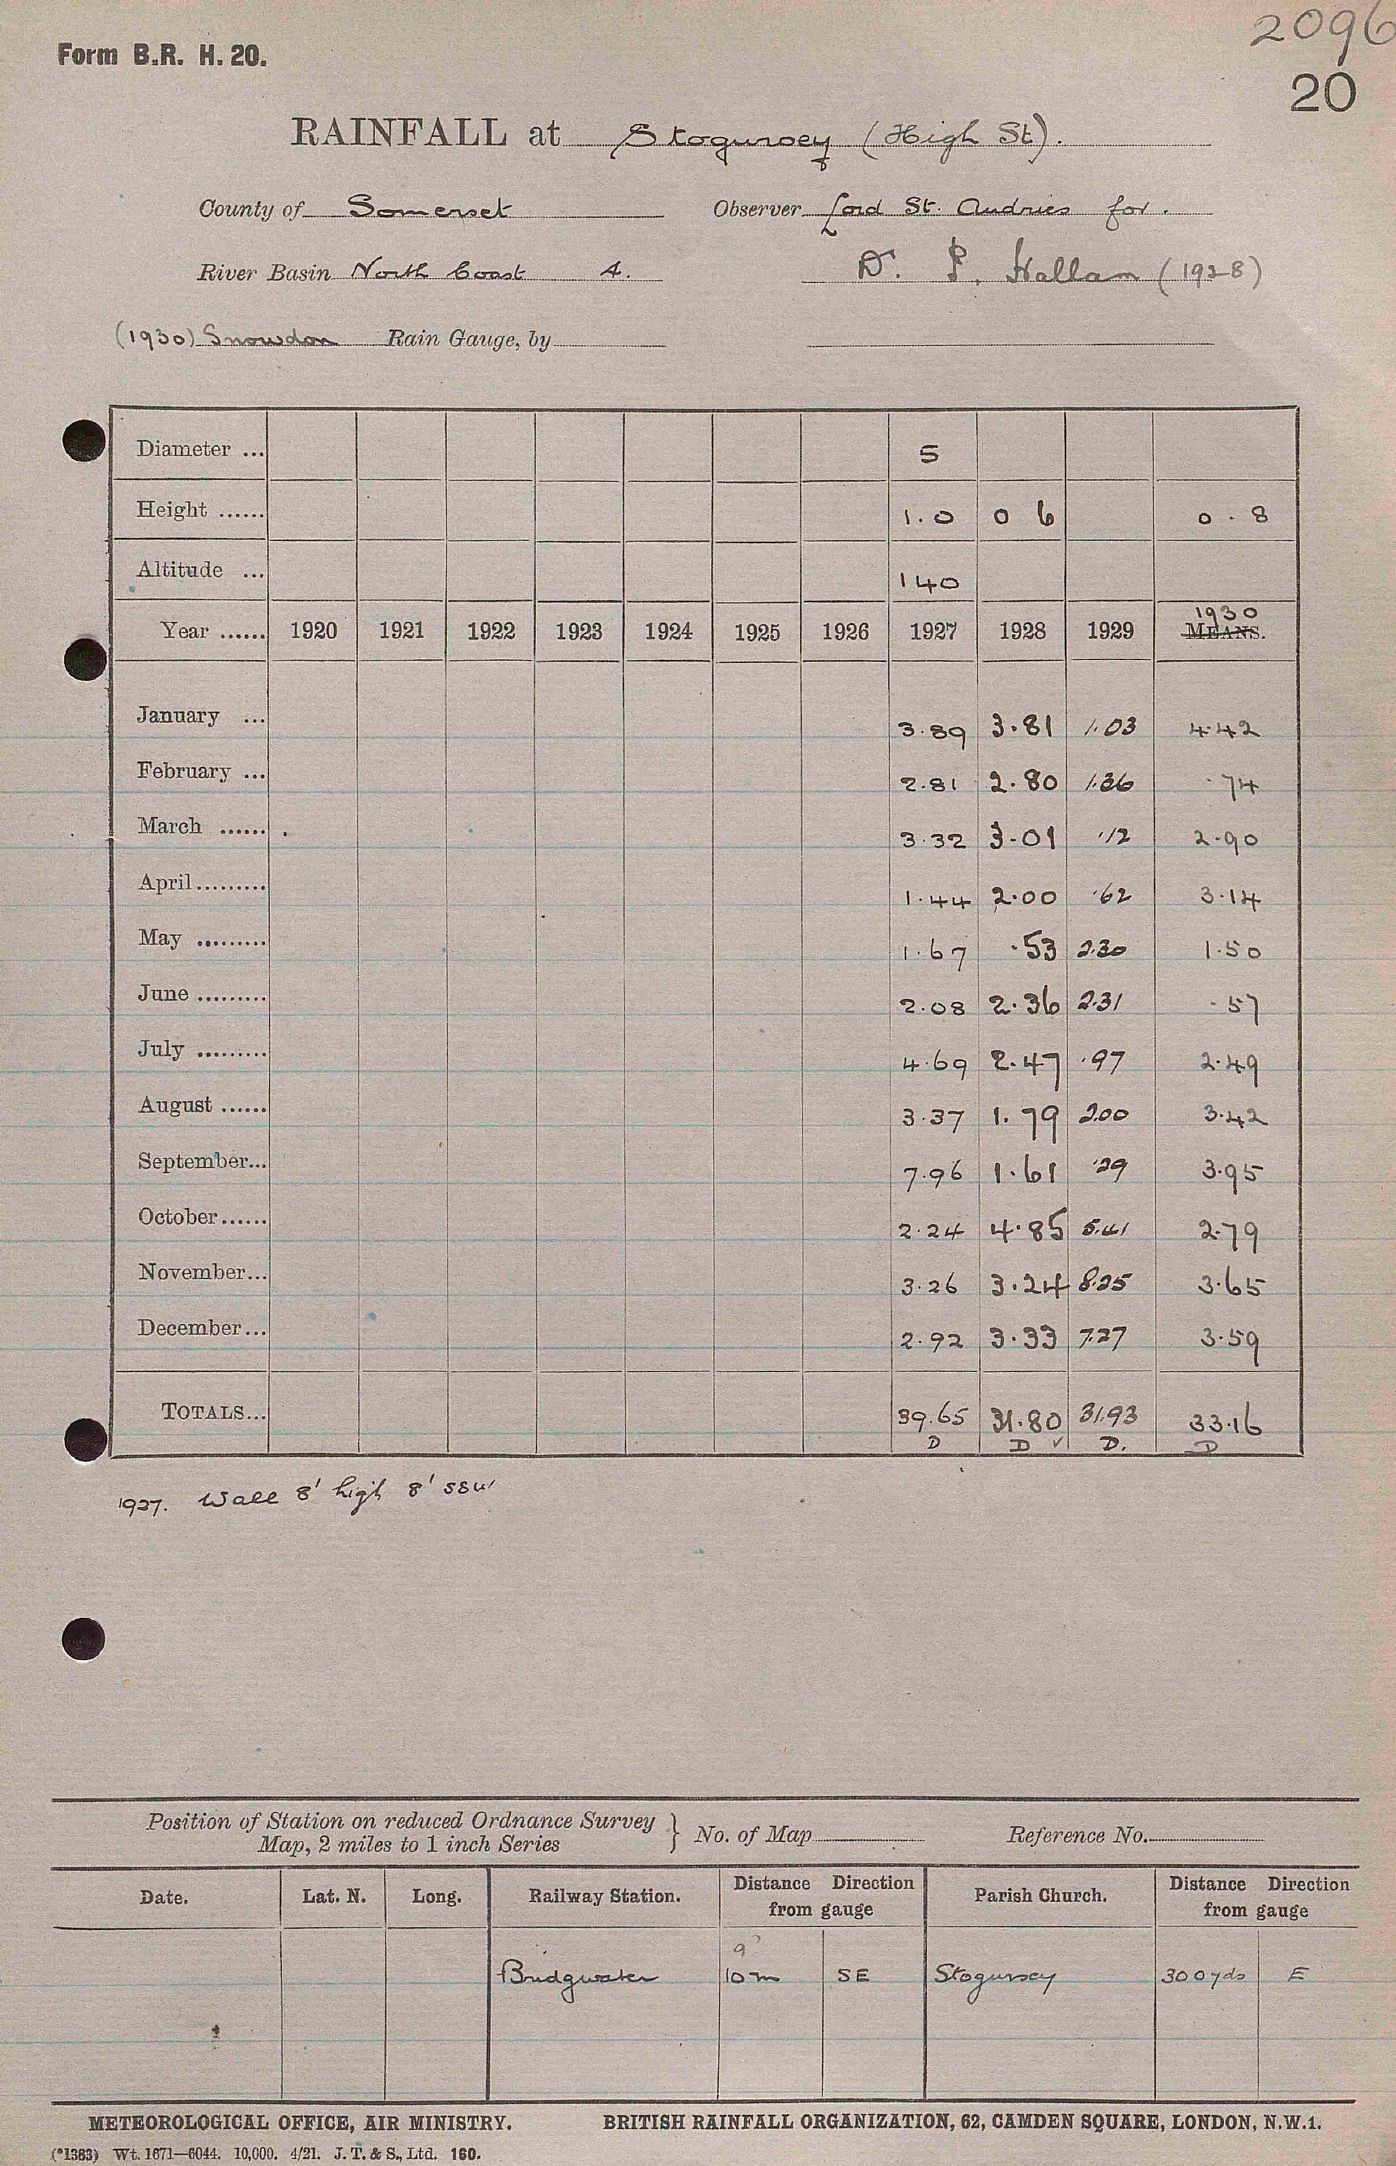 2096
Form B.R. H. 20.
20
RAINFALL at Stogursey (High St).
County of Somerset Observer Lord St. Audries for.
River Basin North Coast A. D. P. Hallam (1928)
(1930) Snowdon Rain Gauge, by
Diameter ... 5
Height ...... 1.0 0 6 0.8
Altitude ... 140
1930
Year ...... 1920 1921 1922 1923 1924 1925 1926 1927 1928 1929 MEANS.
January ... 3.89 3.81 1.03 4.42
February ... 2.81 2.80 1.36 .74
March ...... 3.32 3.01 .12 2.90
April ......... 1.44 2.00 .62 3.14
May ......... 1.67 .53 2.30 1.50
June ......... 2.08 2.36 2.31 .57
July ......... 4.69 2.47 .97 2.49
August ...... 3.37 1.79 2.00 3.42
September... 7.96 1.61 .29 3.95
October...... 2.24 4.85 5.41 2.79
November... 3.26 3.24 8.25 3.65
December... 2.92 3.33 7.27 3.59
TOTALS... 39.65 31.80 31.93 33.16
D D ✓ D. D
1927. Wall 8' high 8' SSW
Position of Station on reduced Ordnance Survey
Map, 2 miles to 1 inch Series } No. of Map Reference No.
Date. Lat. N. Long. Railway Station. Distance Direction from gauge Parish Church. Distance Direction from gauge
9
Bridgwater 10 m SE Stogursey 300 yds E
METEOROLOGICAL OFFICE, AIR MINISTRY. BRITISH RAINFALL ORGANIZATION, 62, CAMDEN SQUARE, LONDON, N.W.1.
(*1383) Wt. 1671—6044. 10,000. 4/21. J. T. & S., Ltd. 160.